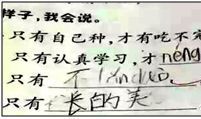 样子，我会说。
只有自己种，才有吃不完
只有认真学习，才néng
只有 不
只有 长的美